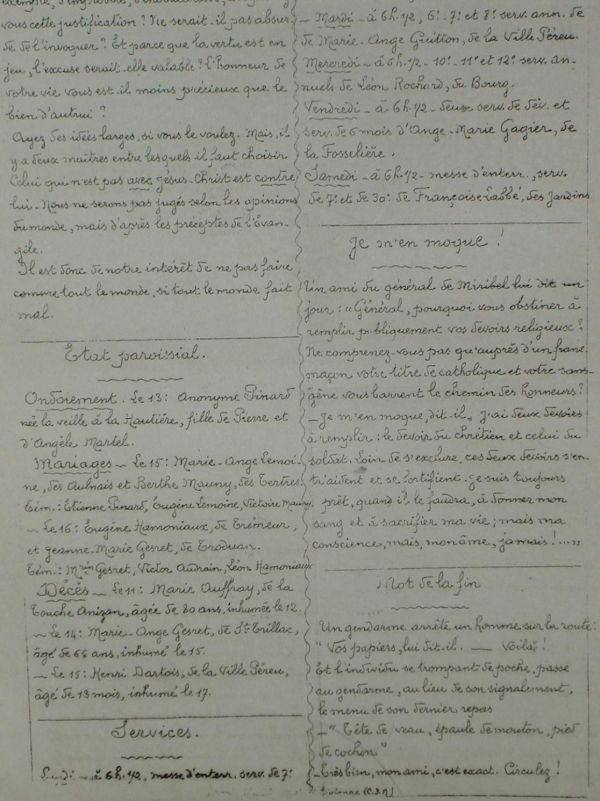 vous cette justification? Ne serait-il pas absur
de de l'invoquer? Et parce que la vertu est en
jeu, l'excuse serait-elle valable? L'honneur de
votre vie vous est-il moins précieux que le
bien d'autrui?
Ayez des idées larges, si vous le voulez. Mais, il
y a deux maîtres entre lesquels il faut choisir
Celui qui n'est pas avec Jésus-Christ est contre
lui. Nous ne serons pas jugés selon les opinions
du monde, mais d'après les préceptes de l'Evan-
gile.
Il est donc de notre intérêt de ne pas faire
comme tout le monde, si tout le monde fait
mal.
Etat paroissial.
Ondoiement. Le 13: Anonyme Pinard
née la veille à la Hautière, fille de Pierre et
d'Angèle Martel.
Mariages - Le 15: Marie-Ange Lemoi-
ne, des Aulnais et Berthe Mauny, des Tertres
Tém.: Etienne Pinard, Eugène Lemoine, Victoire Mauny
- Le 16: Eugène Hamoniaux, de Trémeur,
et Jeanne-Marie Gesret, de Troduan.
Tém.: Gesret, Victor Audrain, Léon Hamoniaux
Décès - Le 11: Marie Auffray, de la
Touche Anizan, âgée de 80 ans, inhumée le 12.
- Le 14: Marie-Ange Gesret, de St-Trillac,
âgé de 66 ans, inhumé le 15.
- Le 15: Henri Dartois, de la Ville Péreu,
âgé de 13 mois, inhumé le 17.
Services.
Lundi - à 6h.1/2, messe d'enterr. serv. de 7e
- Mardi - à 6h.1/2, 6e-7e et 8e serv. ann. de
de Marie-Ange Guitton, de la Ville Péreu.
Mercredi - à 6h.1/2 - 10e-11e et 12e serv. an-
nuels de Léon Rochard, du Bourg.
Vendredi - à 6h.1/2 - deux serv. de dév. et
serv. de 6 mois d'Ange-Marie Gagier, de
la Fosselière.
Samedi - à 6h.1/2 - messe d'enterr., serv.
de 7e et de 30e de Françoise Labbé, des Jardins
Je m'en moque!
Un ami du général de Miribel lui dit un
jour: "Général, pourquoi vous obstiner à
remplir publiquement vos devoirs religieux?
Ne comprenez-vous pas qu'auprès d'un franc
maçon votre titre de catholique et votre sans-
gêne vous barrent le chemin des honneurs?
- Je m'en moque, dit-il. J'ai deux devoirs
à remplir: le devoir du chrétien et celui du
soldat. Loin de s'exclure, ces deux devoirs s'en-
traident et se fortifient. Je suis toujours
prêt, quand il le faudra, à donner mon
sang et à sacrifier ma vie; mais ma
conscience, mais mon âme, jamais!...."
Mot de la fin
Un gendarme arrête un homme sur la route:
"Vos papiers, lui dit-il. — Voilà!
Et l'individu se trompant de poche, passe
au gendarme, au lieu de son signalement,
le menu de son dernier repas
- "Tête de veau, épaule de mouton, pied
de cochon"
- Très bien, mon ami, c'est exact. Circulez!